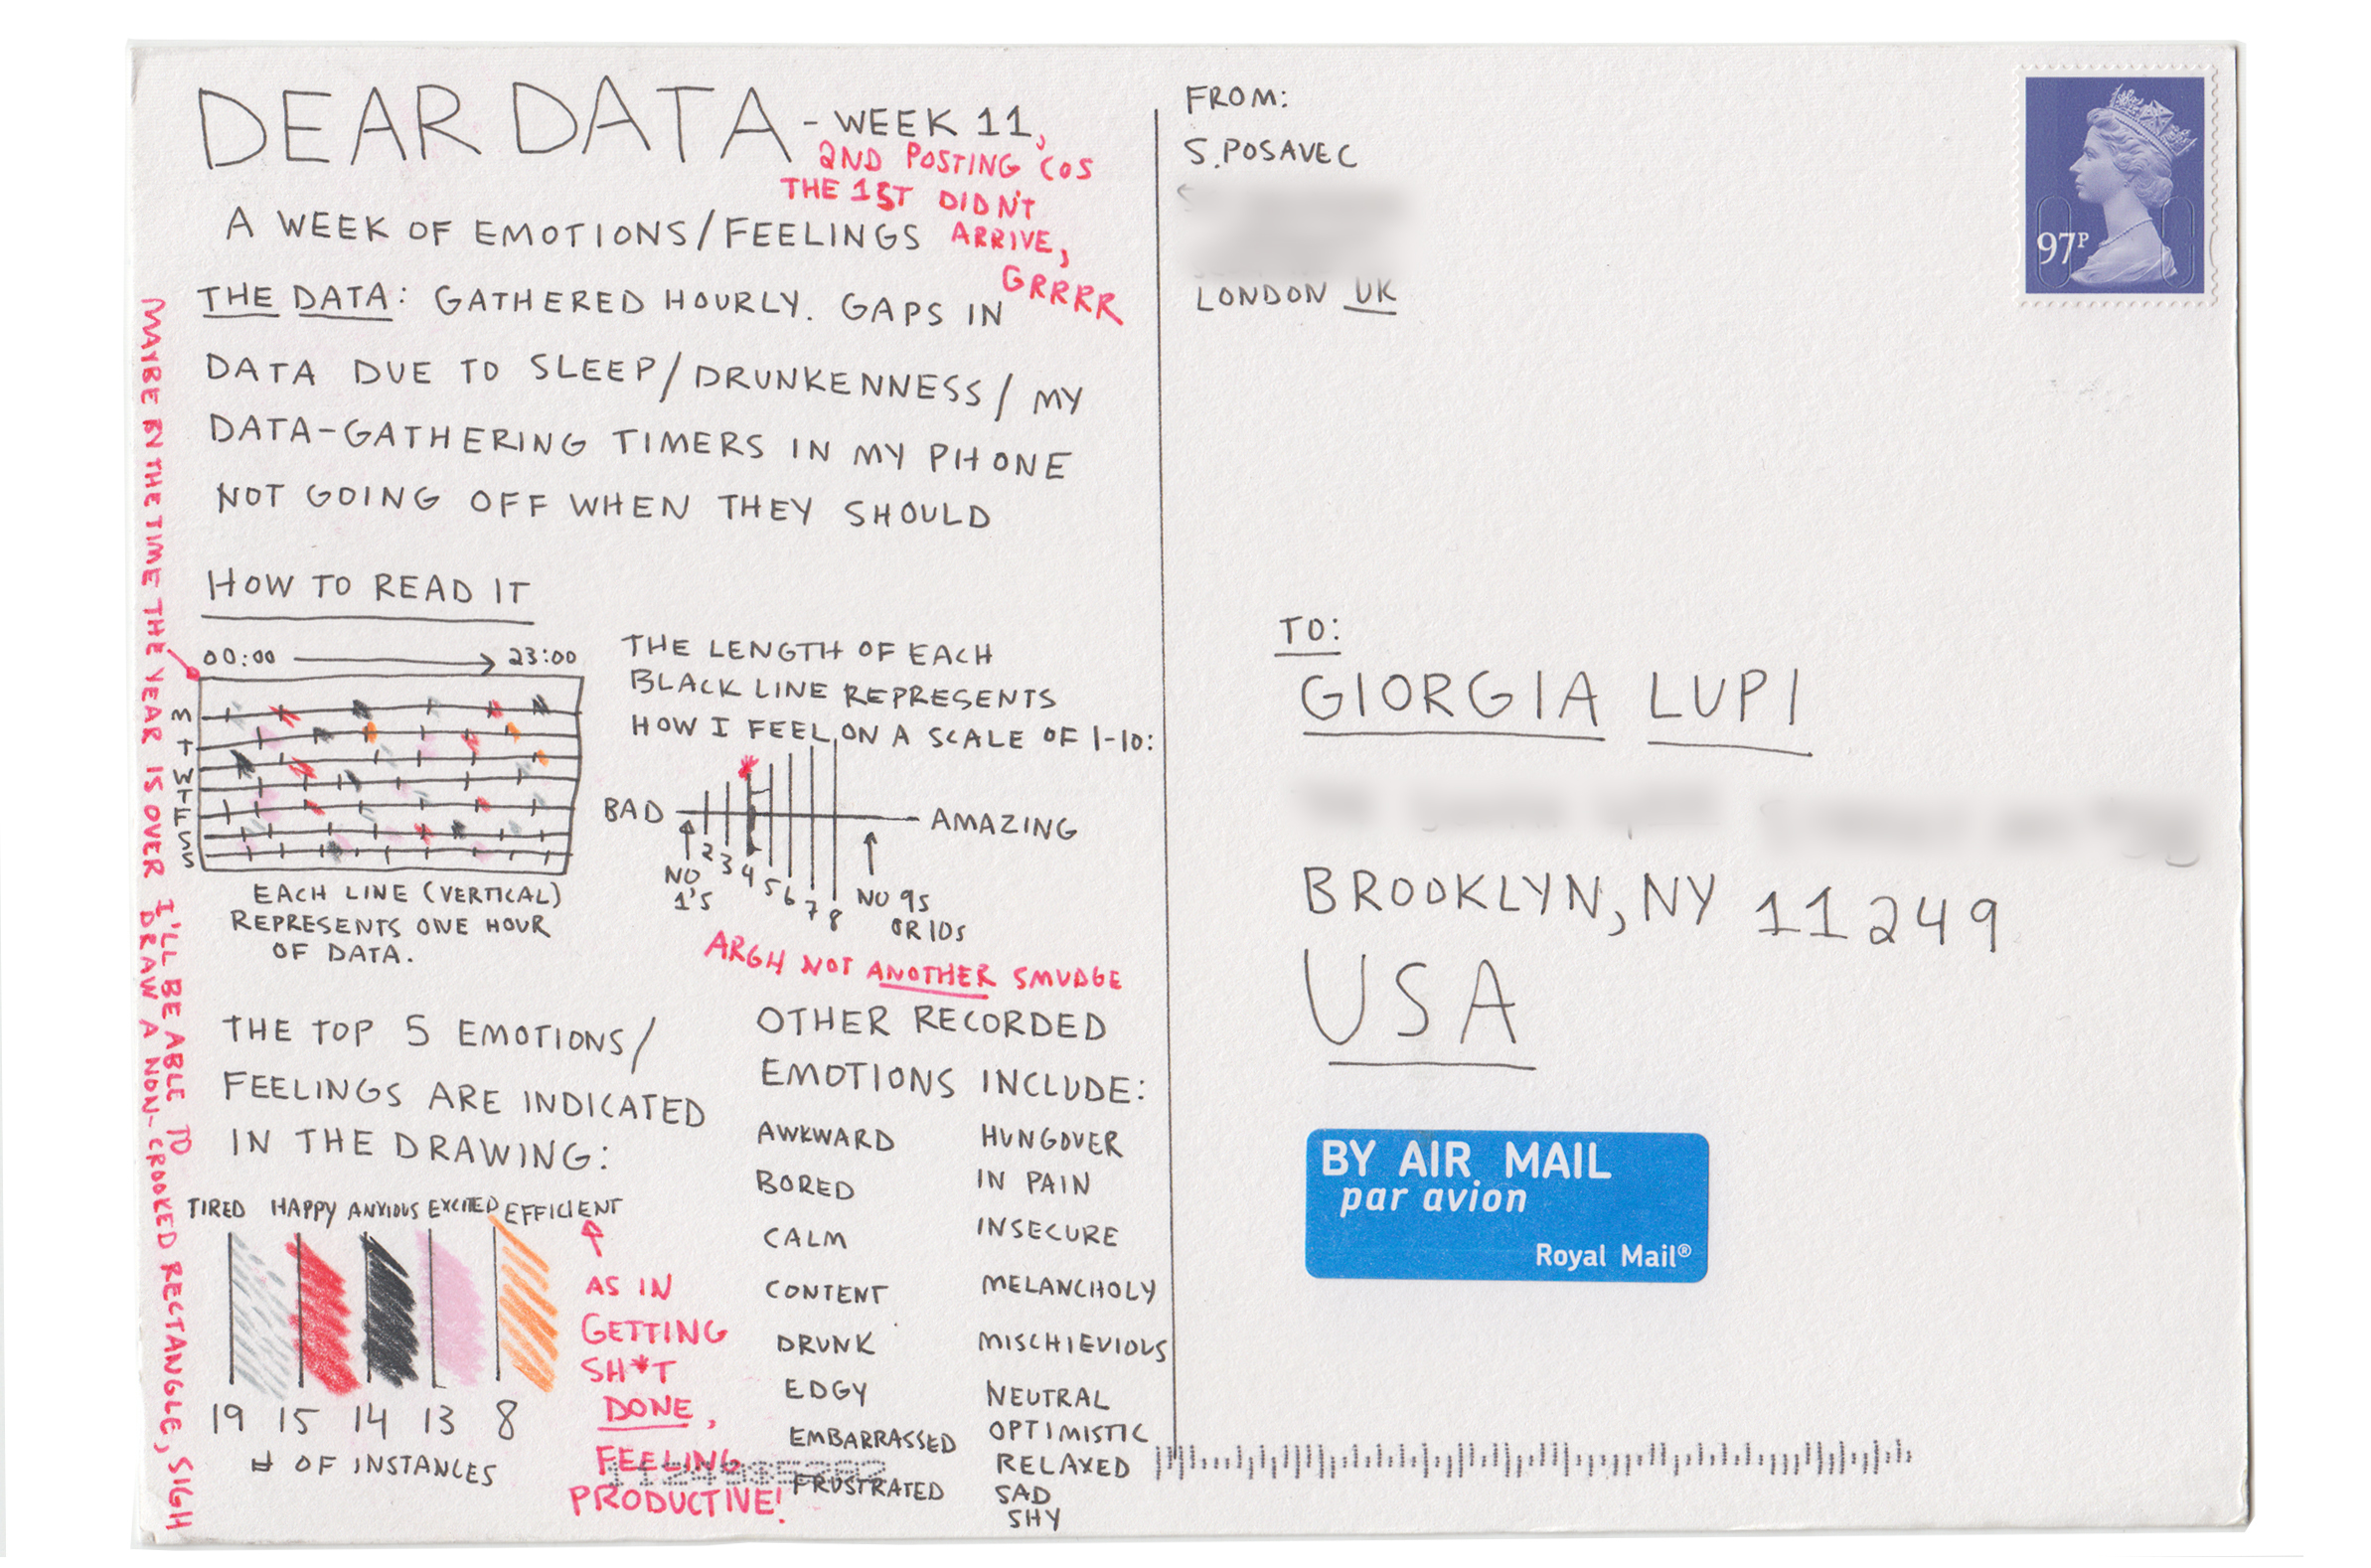 DEAR DATA - WEEK 11,
2ND POSTING COS
THE 1ST DIDN'T
ARRIVE,
GRRRR
A WEEK OF EMOTIONS/FEELINGS
THE DATA: GATHERED HOURLY. GAPS IN
DATA DUE TO SLEEP/DRUNKENNESS/MY
DATA-GATHERING TIMERS IN MY PHONE
NOT GOING OFF WHEN THEY SHOULD
HOW TO READ IT
00:00 23:00
M
T
W
T
F
S
S
EACH LINE (VERTICAL)
REPRESENTS ONE HOUR
OF DATA.
MAYBE BY THE TIME THE YEAR IS OVER I'LL BE ABLE TO
DRAW A NON-CROOKED RECTANGLE, SIGH
THE LENGTH OF EACH
BLACK LINE REPRESENTS
HOW I FEEL ON A SCALE OF 1-10:
BAD AMAZING
NO
1'S
2 3 4 5 6 7 8
NO 9S
OR 10S
ARGH NOT ANOTHER SMUDGE
THE TOP 5 EMOTIONS/
FEELINGS ARE INDICATED
IN THE DRAWING:
TIRED HAPPY ANXIOUS EXCITED EFFICIENT
19 15 14 13 8
# OF INSTANCES
AS IN
GETTING
SH*T
DONE,
FEELING
PRODUCTIVE!
OTHER RECORDED
EMOTIONS INCLUDE:
AWKWARD
BORED
CALM
CONTENT
DRUNK
EDGY
EMBARRASSED
FRUSTRATED
HUNGOVER
IN PAIN
INSECURE
MELANCHOLY
MISCHIEVIOUS
NEUTRAL
OPTIMISTIC
RELAXED
SAD
SHY
FROM:
S.POSAVEC
LONDON UK
97P
TO:
GIORGIA LUPI
BROOKLYN, NY 11249
USA
BY AIR MAIL
par avion
Royal Mail®